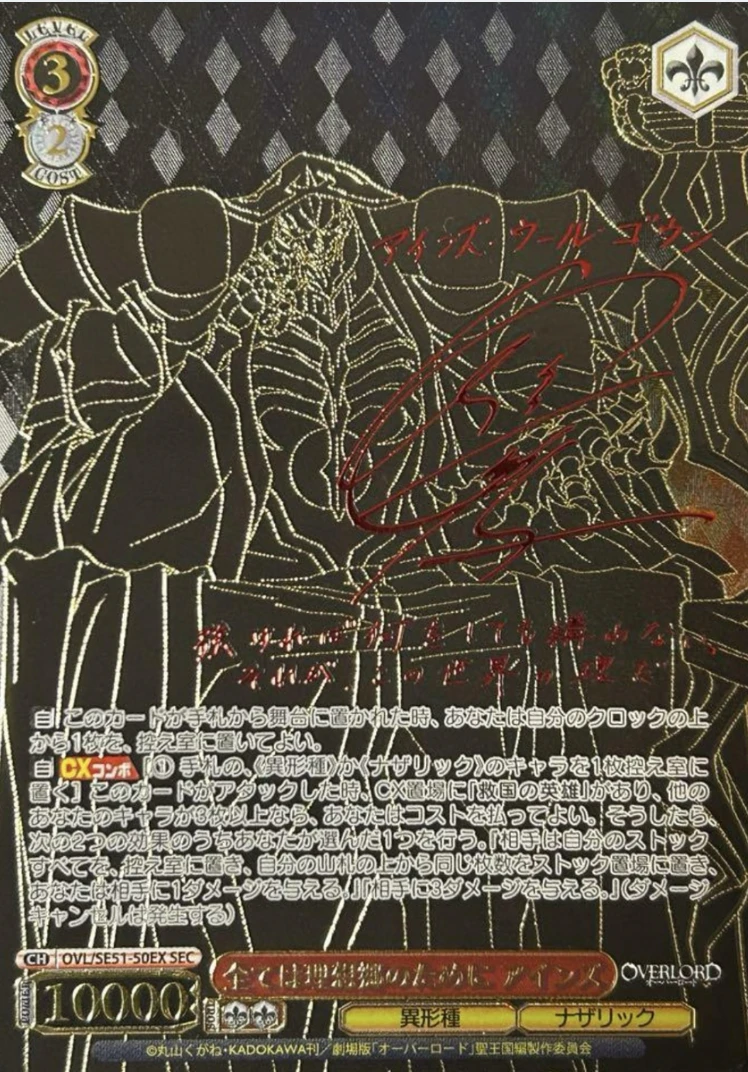 LEVEL
3
2
COST
アインズ・ウール・ゴウン
強ければ何をしても構わない。
それが、この世界の理だ
自 このカードが手札から舞台に置かれた時、あなたは自分のクロックの上
から1枚を、控え室に置いてよい。
自 CXコンボ [① 手札の、《異形種》か《ナザリック》のキャラを1枚控え室に
置く] このカードがアタックした時、CX置場に「救国の英雄」があり、他の
あなたのキャラが3枚以上なら、あなたはコストを払ってよい。そうしたら、
次の2つの効果のうちあなたが選んだ1つを行う。『相手は自分のストック
すべてを、控え室に置き、自分の山札の上から同じ枚数をストック置場に置き、
あなたは相手に1ダメージを与える。』『相手に3ダメージを与える。』(ダメージ
キャンセルは発生する)
CH OVL/SE51-50EX SEC
全ては理想郷のために アインズ
OVERLORD
POWER
10000
異形種
ナザリック
©丸山くがね・KADOKAWA刊／劇場版「オーバーロード」聖王国編製作委員会